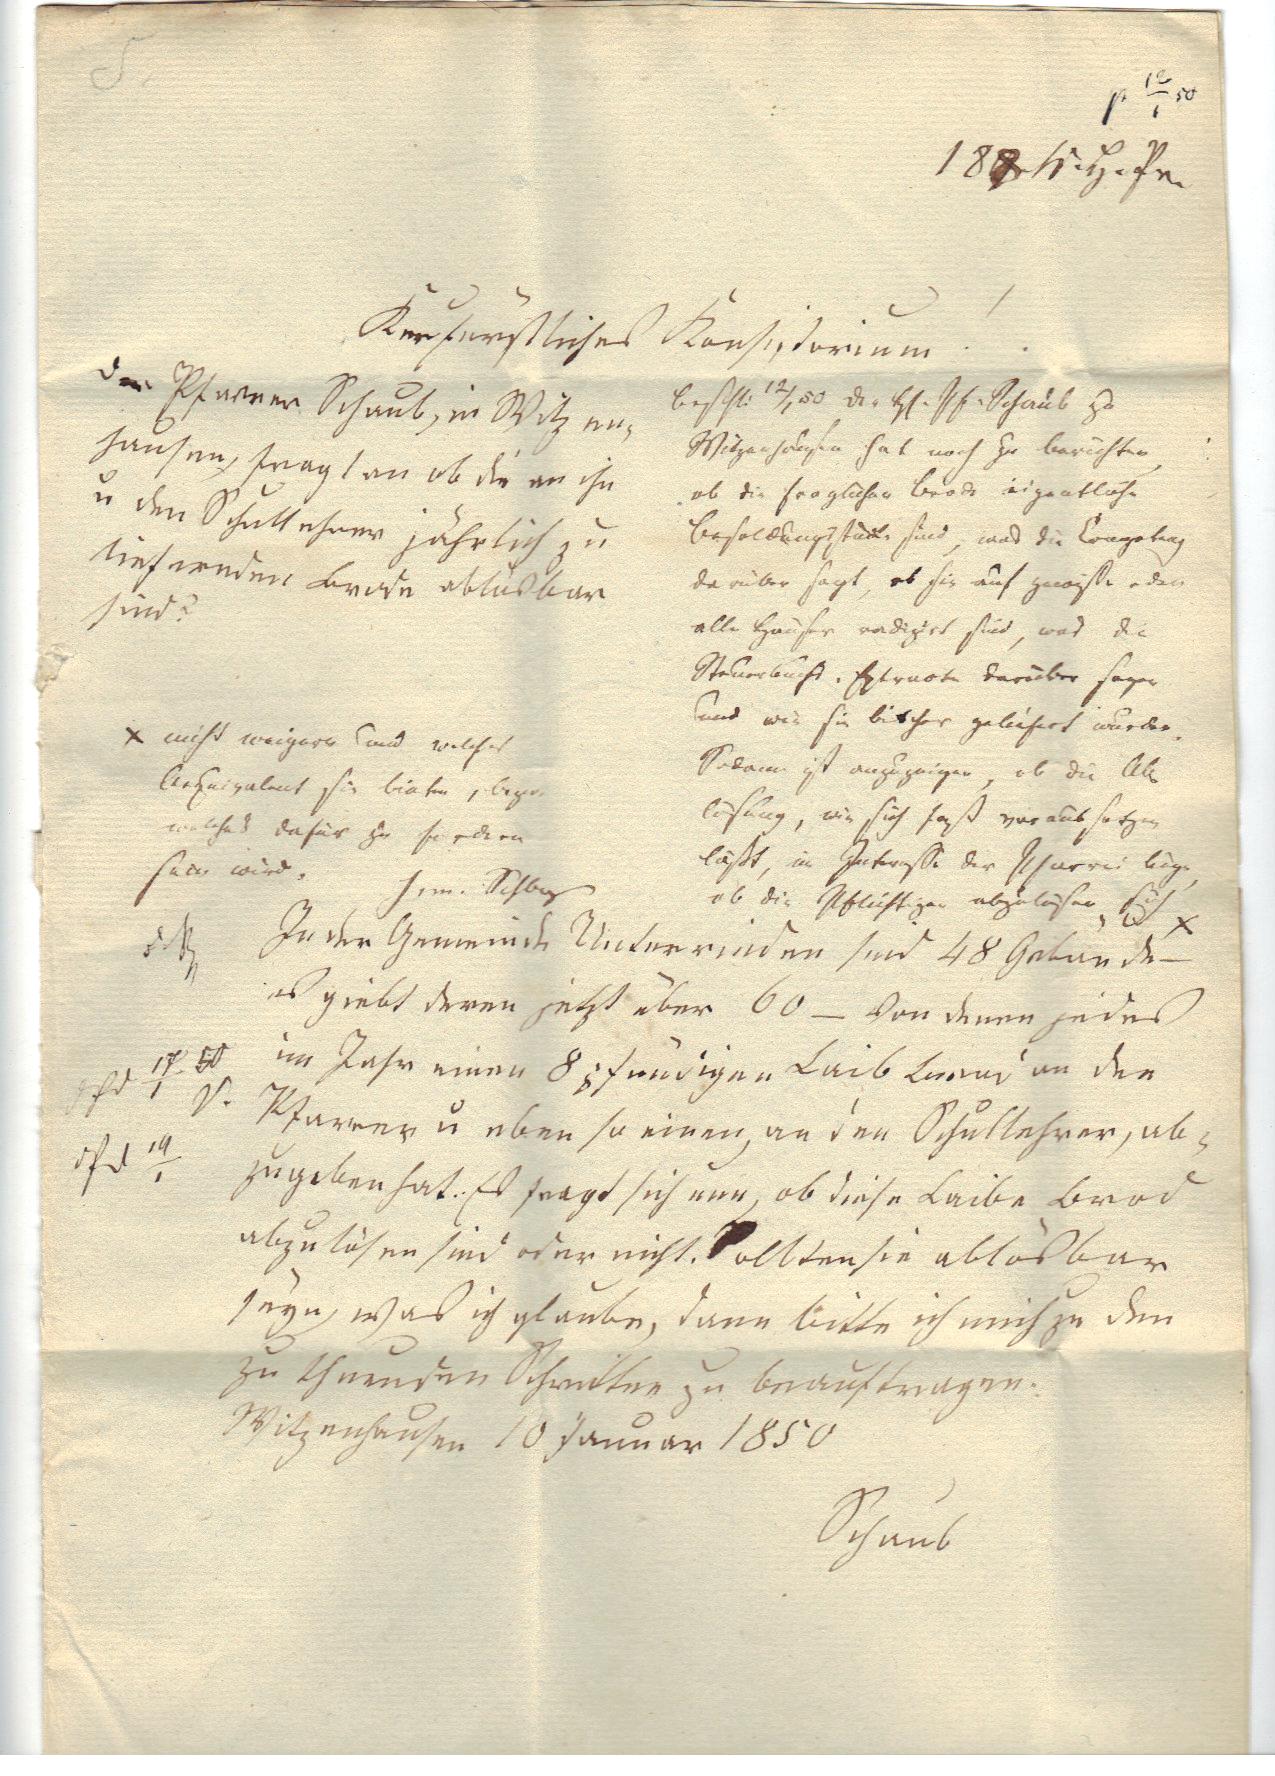 5.
p 12/1 50
188 K.H.Pr.
Kurfürstliches Konsistorium!
Der Pfarrer Schaub, in Witzen-
hausen, fragt an ob die an ihn
u den Schullehrer jährlich zu
liefernden Brode ablösbar
sind?
Beschl: 12/1 50 der Schaub zu
Witzenhausen hat noch zu berichten,
ob die fraglichen Brode eigentliche
Besoldungsstücke sind, was die
darüber sagt, ob sie auf gewisse oder
alle Häuser radizirt sind, was die
Steuerbuchs-Extracte darüber sagen
und wie sie bisher geliefert wurden.
Sodann ist anzuzeigen, ob die Ab-
lösung, wie sich fast voraussetzen
läßt, im Interesse der Pfarrei liege,
ob die Pflichtigen abzulösen sich x
x nicht weigern und welches
Aequivalent sie bieten, bezw.
welches dafür zu fordern
sein wird.
In der Gemeinde Unterrieden sind 48 Gebäude –
es giebt deren jetzt über 60 – von denen jedes
im Jahr einen 8 pfündigen Laib Brod an den
Pfarrer u eben so einen, an den Schullehrer, ab-
zugeben hat. Es fragt sich nun, ob diese Laibe Brod
abzulösen sind oder nicht. Sollten sie ablösbar
seyn, was ich glaube, dann bitte ich mich zu den
zu thuenden Schritten zu beauftragen.
Witzenhausen 10 Januar 1850
Schaub
17/1 50
19/1